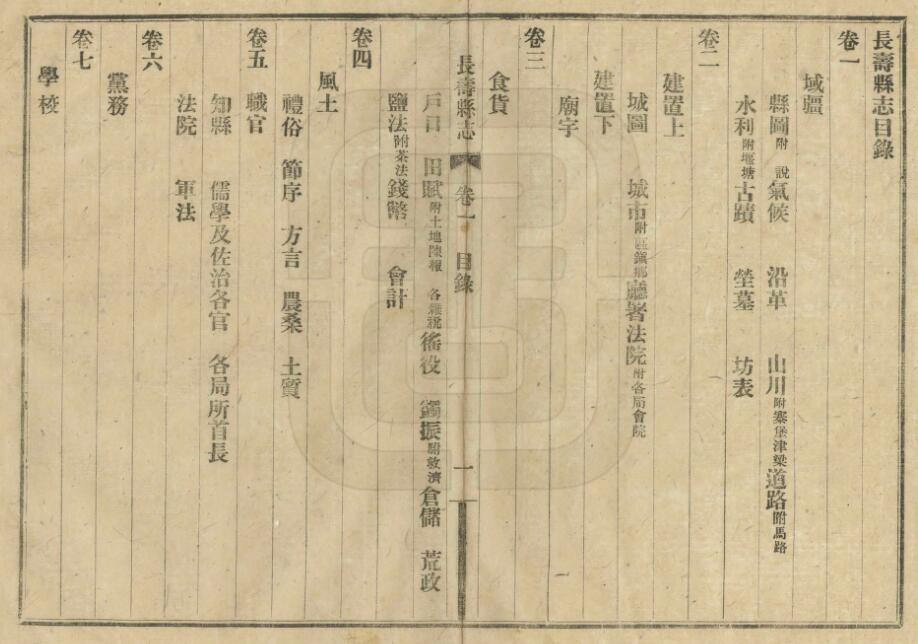 長壽縣志目錄
卷一
域疆
縣圖附說 氣候 沿革 山川附寨堡津梁 道路附馬路
水利附堰塘 古蹟 塋墓 坊表
卷二
建置上
城圖 城市附區鎭鄉 廳署法院附各局會院
建置下
廟宇
卷三
食貨
長壽縣志 卷一 目錄 一
戶口 田賦附土地陳報 各雜稅 徭役 蠲振附救濟 倉儲 荒政
鹽法附茶法 錢幣 會計
卷四
風土
禮俗 節序 方言 農桑 土質
卷五
職官
知縣 儒學及佐治各官 各局所首長
法院 軍法
卷六
黨務
卷七
學校